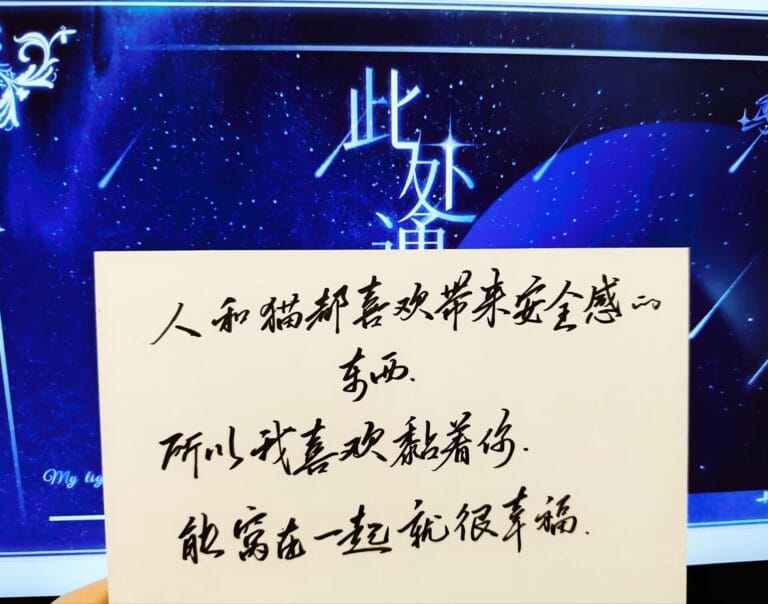 此处通
人和猫都喜欢带来安全感的
东西.
所以我喜欢黏着你.
能窝在一起就很幸福.
My